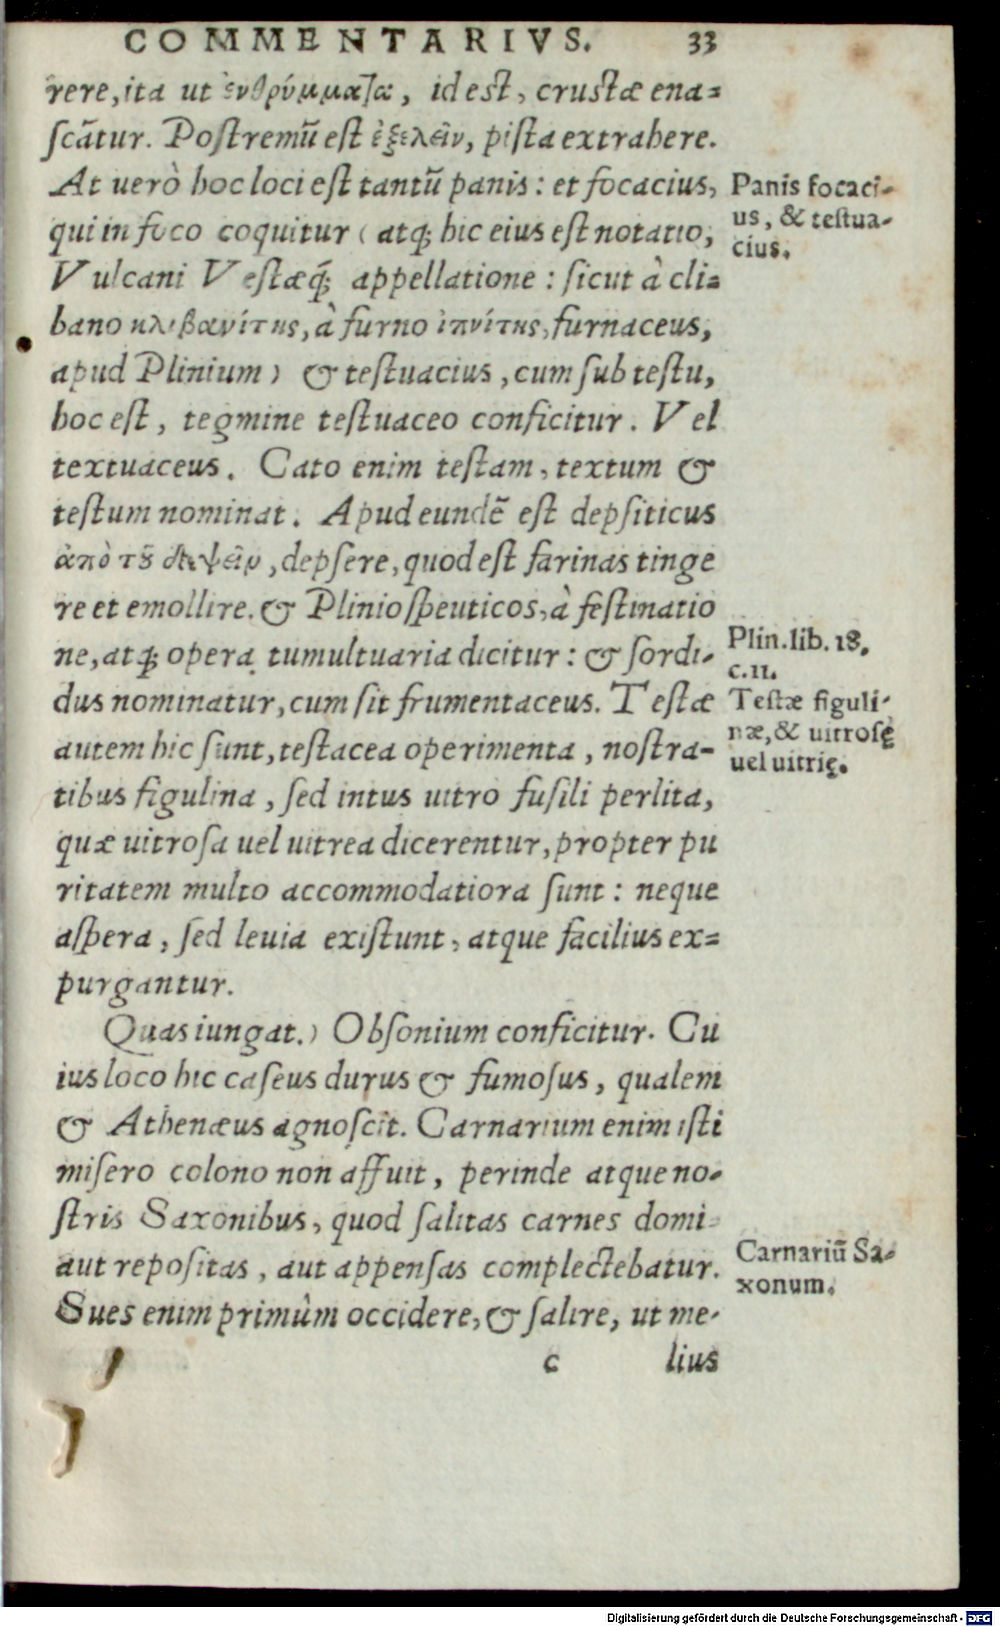 COMMENTARIVS. 33
rere, ita ut ἐνθρύμματα, id est, crustæ ena-
scãtur. Postremũ est ἐξελεῖν, pista extrahere.
At uerò hoc loci est tantũ panis: et focacius,
qui in foco coquitur (atq; hic eius est notatio,
Vulcani Vestæq́; appellatione: sicut à cli-
bano κλιβανίτης, à furno ἰπνίτης, furnaceus,
apud Plinium) & testuacius, cum sub testu,
hoc est, tegmine testuaceo conficitur. Vel
textuaceus. Cato enim testam, textum &
testum nominat. Apud eundẽ est depsiticus
ἀπὸ τοῦ δεψεῖν, depsere, quod est farinas tinge
re et emollire. & Plinio speuticos, à festinatio
ne, atq; opera tumultuaria dicitur: & sordi-
dus nominatur, cum sit frumentaceus. Testæ
autem hic sunt, testacea operimenta, nostra-
tibus figulina, sed intus uitro fusili perlita,
quæ uitrosa uel uitrea dicerentur, propter pu
ritatem multo accommodatiora sunt: neque
aspera, sed leuia existunt, atque facilius ex-
purgantur.
Quas iungat.) Obsonium conficitur. Cu
ius loco hic caseus durus & fumosus, qualem
& Athenæus agnoscit. Carnarium enim isti
misero colono non affuit, perinde atque no-
stris Saxonibus, quod salitas carnes domi
aut repositas, aut appensas complectebatur.
Sues enim primùm occidere, & salire, ut me-
c lius
Panis focaci-
us, & testua-
cius.
Plin. lib. 18.
c. 11.
Testæ figuli-
næ, & uitrosę
uel uitrię.
Carnariũ Sa-
xonum.
Digitalisierung gefördert durch die Deutsche Forschungsgemeinschaft - DFG